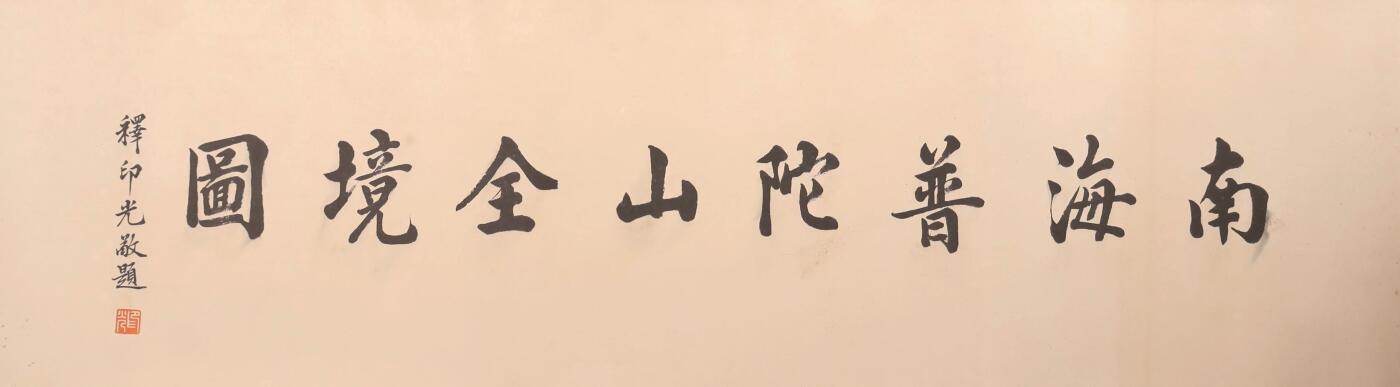 南海普陀山全境圖
釋印光敬題